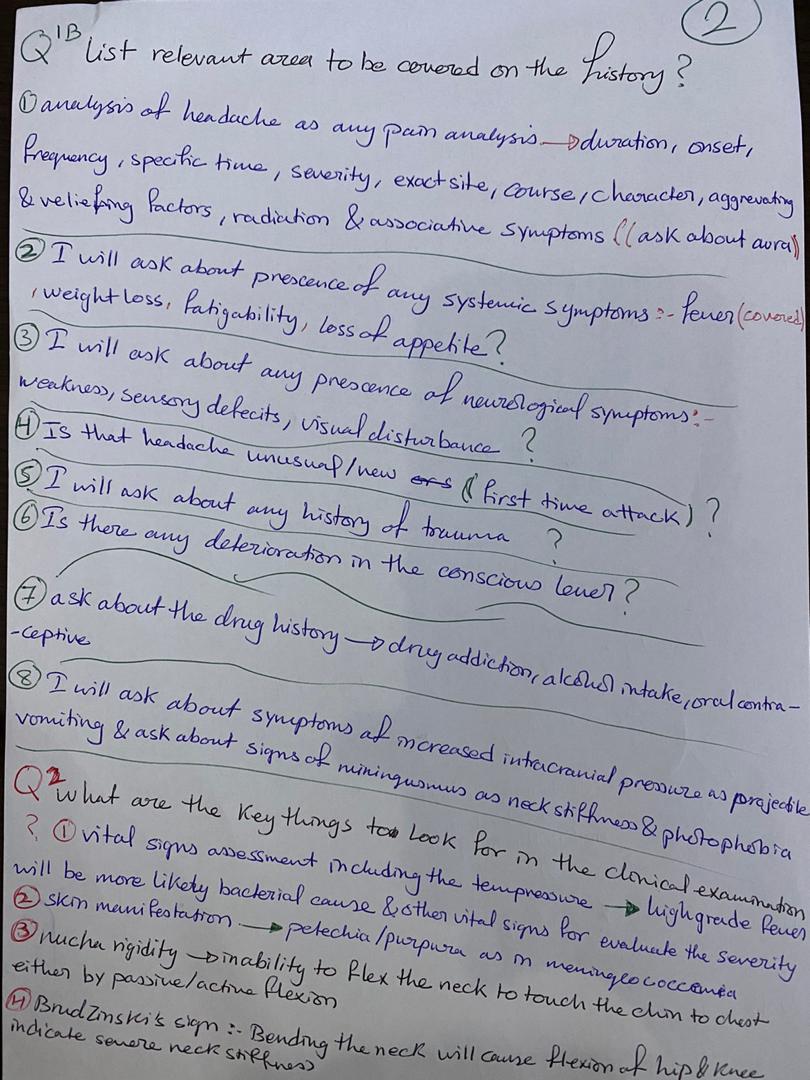 2
Q1B list relevant area to be covered on the history?
① analysis of headache as any pain analysis → duration, onset,
frequency, specific time, severity, exact site, course, character, aggrevating
& veliefing factors, radiation & associative symptoms ((ask about aura))
② I will ask about prescence of any systemic symptoms :- fever (covered)
, weight loss, fatigability, loss of appetite?
③ I will ask about any prescence of neurological symptoms :-
weakness, sensory defecits, visual disturbance ?
④ Is that headache unusual/new (first time attack) ?
⑤ I will ask about any history of trauma ?
⑥ Is there any deterioration in the conscious lever?
⑦ ask about the drug history → drug addiction, alcohol intake, oral contra-
-ceptive
⑧ I will ask about symptoms of increased intracranial pressure as projectile
vomiting & ask about signs of miningusmus as neck stiffness & photophobia
Q2 what are the Key things to Look for in the clinical examination
? ① vital signs assessment including the tempressure → high grade fever
will be more likely bacterial cause & other vital signs for evaluate the severity
② skin manifestation → petechia/purpura as in meningeococcemia
③ nucha rigidity → inability to flex the neck to touch the chin to chest
either by passive/active flexion
④ BrudZinski's sign :- Bending the neck will cause flexion of hip & Knee
indicate severe neck stiffness